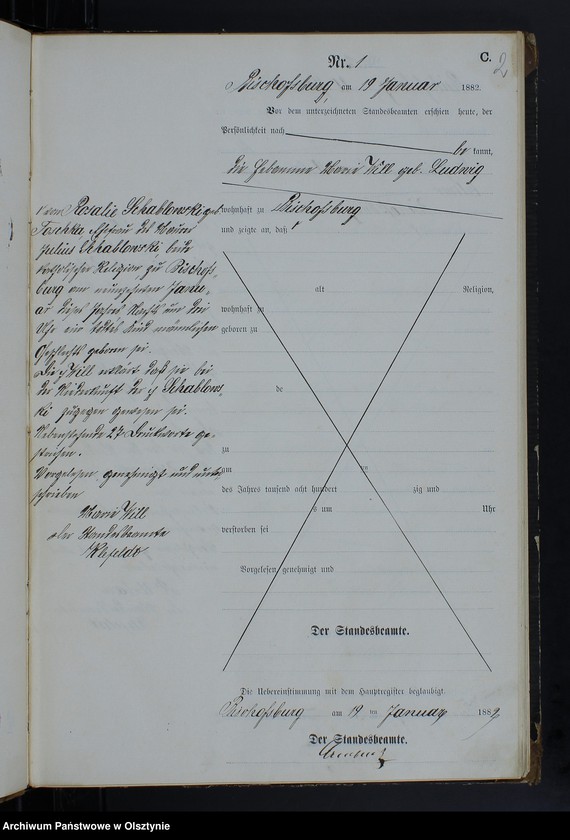 C.
2
Nr. 1
Bischofsburg, am 19 Januar 1882.
Vor dem unterzeichneten Standesbeamten erschien heute, der
Persönlichkeit nach
be kannt,
die Hebamme Marie Will geb. Ludwig
wohnhaft zu Bischofsburg
und zeigte an, daß
von Rosalie Schablowski geb.
Joschka, Ehefrau des Maurer
Julius Schablowski beide
katholischer Religion, zu Bischofs,
burg am neunzehnten Janu,
ar dieses Jahres Nachts um drei
Uhr ein todtes Kind männlichen
Geschlechts geboren sei.
Die Will erklärt daß sie bei
der Niederkunft der Schablows,
ki zugegen gewesen sei.
Nebenstehende 27 Druckworte ge-
strichen.
Vorgelesen, genehmigt und unter,
schrieben
Marie Will
der Standesbeamte
alt Religion,
wohnhaft zu
geboren zu
de
zu
am ten
des Jahres tausend acht hundert zig und
s um Uhr
verstorben sei
Vorgelesen genehmigt und
Der Standesbeamte.
Die Uebereinstimmung mit dem Hauptregister beglaubigt.
Bischofsburg am 19 ten Januar 1882
Der Standesbeamte.
Archiwum Państwowe w Olsztynie